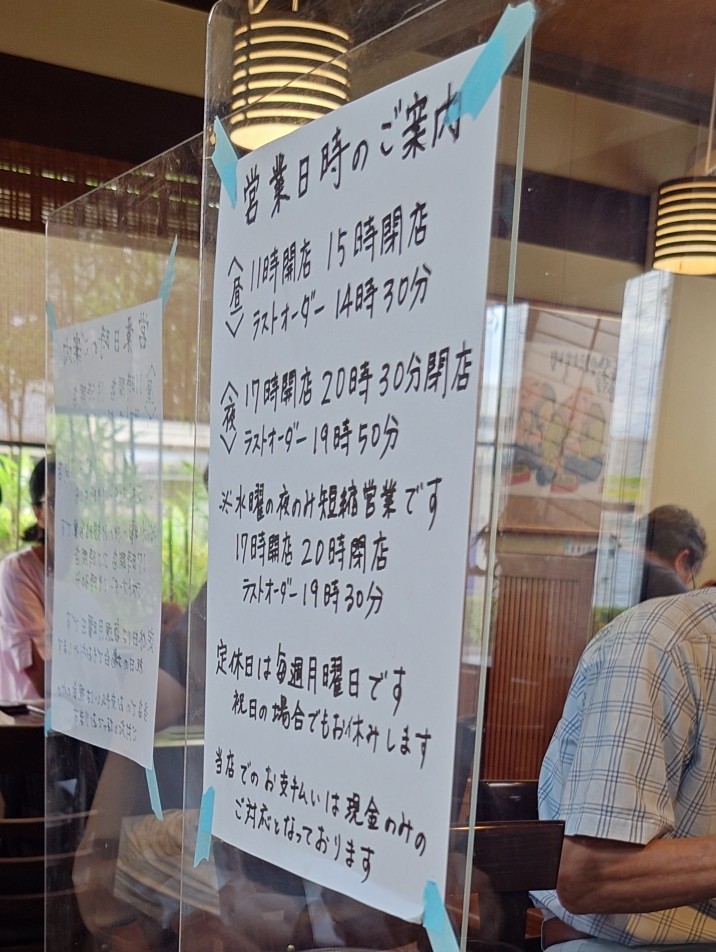 営業日時のご案内
〈昼〉 11時開店 15時閉店
ラストオーダー 14時30分
〈夜〉 17時開店 20時30分閉店
ラストオーダー 19時50分
※水曜の夜のみ短縮営業です
17時開店 20時閉店
ラストオーダー 19時30分
定休日は毎週月曜日です
祝日の場合でもお休みします
当店でのお支払いは現金のみの
ご対応となっております